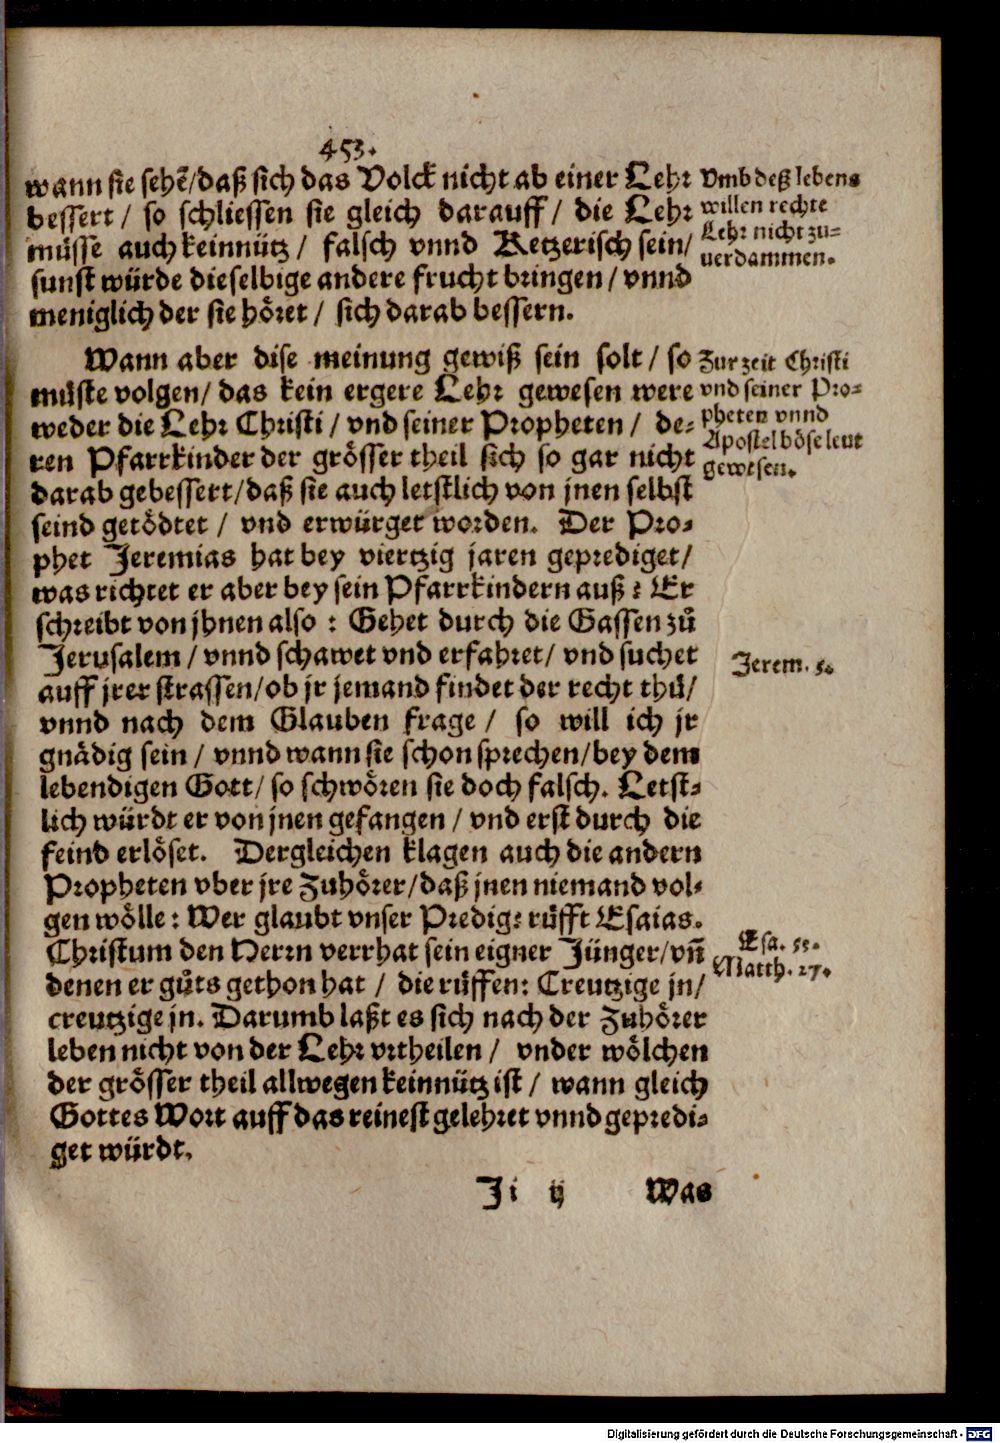 453.
wann sie sehẽ/daß sich das Volck nicht ab einer Lehr
bessert / so schliessen sie gleich darauff / die Lehr
müsse auch keinnütz / falsch vnnd Ketzerisch sein/
sunst würde dieselbige andere frucht bringen / vnnd
meniglich der sie höret / sich darab bessern.
Vmb deß lebens
willen rechte
Lehr nicht zu-
uerdammen.
Wann aber dise meinung gewiß sein solt / so
müste volgen/ das kein ergere Lehr gewesen were
weder die Lehr Christi / vnd seiner Propheten / de-
ren Pfarrkinder der grösser theil sich so gar nicht
darab gebessert/daß sie auch letstlich von jnen selbst
seind getödtet / vnd erwürget worden. Der Pro-
phet Jeremias hat bey viertzig jaren geprediget/
was richtet er aber bey sein Pfarrkindern auß? Er
schreibt von jhnen also : Gehet durch die Gassen zů
Jerusalem / vnnd schawet vnd erfahret/ vnd suchet
auff jrer strassen/ob jr jemand findet der recht thů/
vnnd nach dem Glauben frage / so will ich jr
gnädig sein / vnnd wann sie schon sprechen/bey dem
lebendigen Gott/ so schwören sie doch falsch. Letst-
lich würdt er von jnen gefangen / vnd erst durch die
feind erlöset. Dergleichen klagen auch die andern
Propheten vber jre Zuhörer/daß jnen niemand vol-
gen wölle: Wer glaubt vnser Predig? rüfft Esaias.
Christum den Herrn verrhat sein eigner Jünger/vñ
denen er gůts gethon hat / die rüffen: Creutzige jn/
creutzige jn. Darumb laßt es sich nach der Zuhörer
leben nicht von der Lehr vrtheilen / vnder wölchen
der grösser theil allwegen keinnütz ist / wann gleich
Gottes Wort auff das reinest gelehret vnnd gepredi-
get würdt.
Zur zeit Christi
vnd seiner Pro-
pheten vnnd
Apostel böse leut
gewesen.
Jerem. 5.
Esa. 53.
Matth. 27.
Ji ij Was
Digitalisierung gefördert durch die Deutsche Forschungsgemeinschaft - DFG